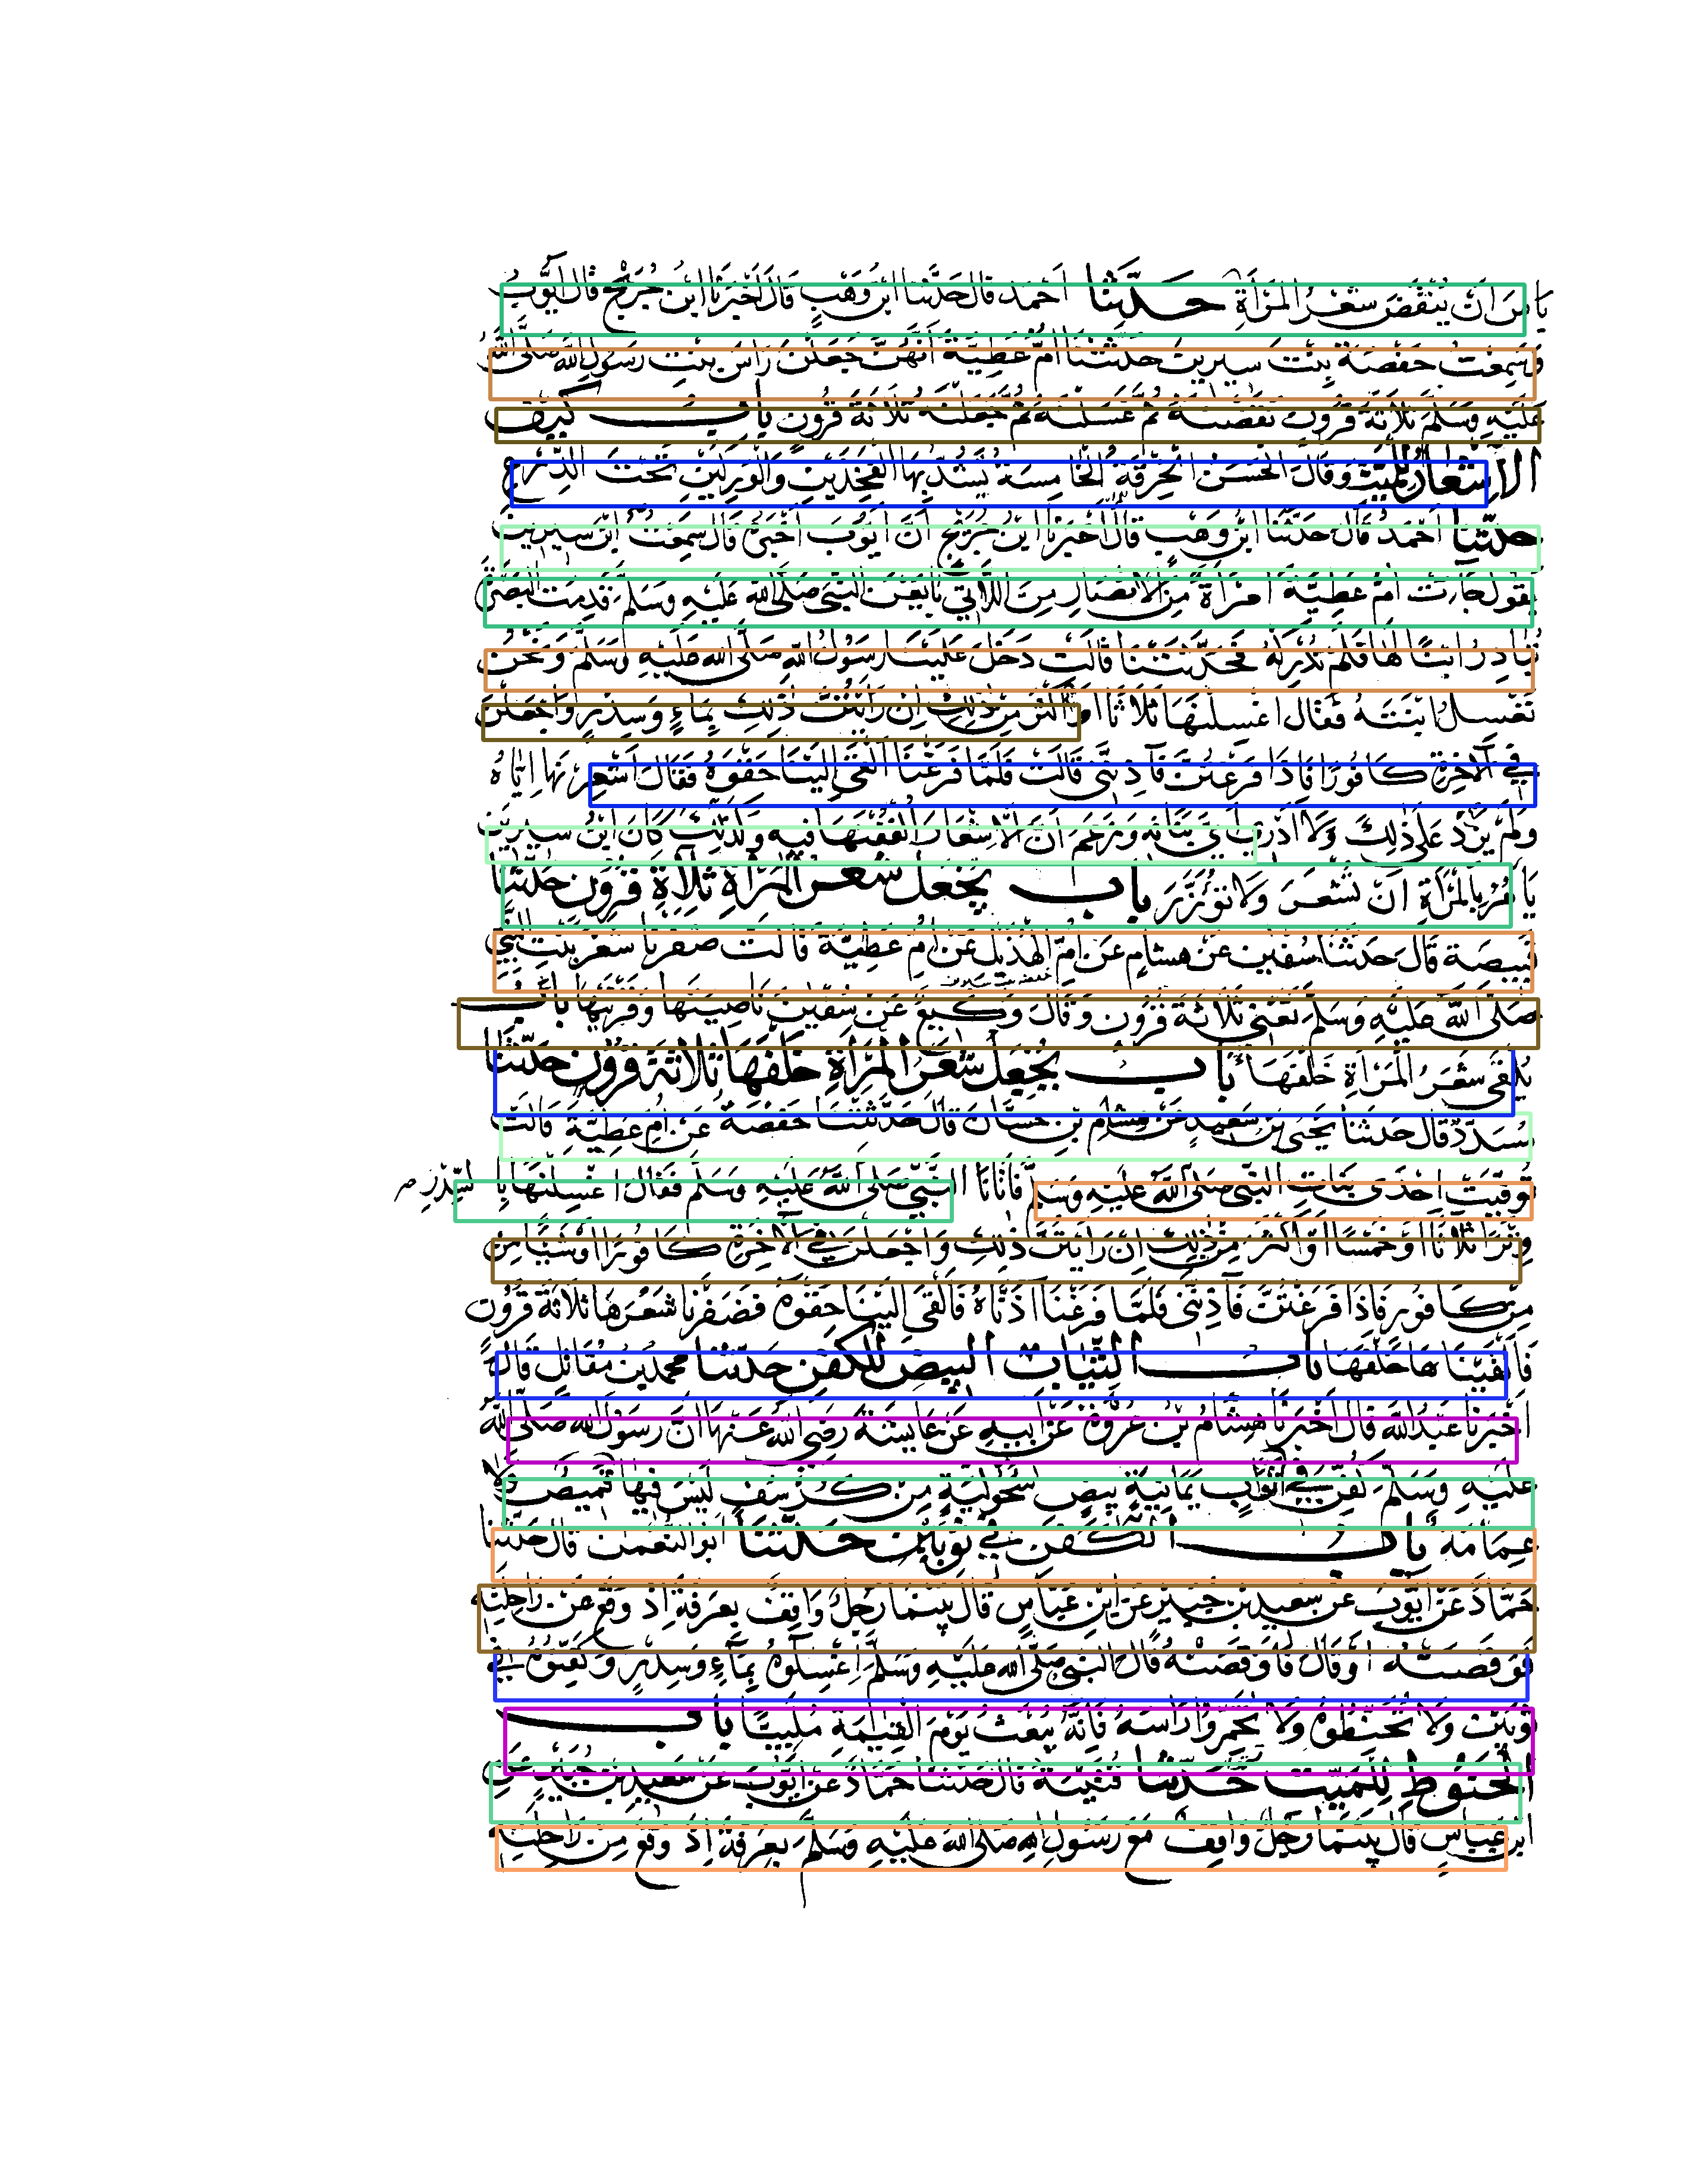 باس ان ينقض شعر المرأة حدثنا احمد قال حدثنا ابن وهب قال اخبرنا ابن جريج قال ايوب
وسمعت حفصة بنت سيرين حدثتنا ام عطية انهن جعلن راس بنت رسول الله صلى الله
عليه وسلم ثلاثة قرون نقضنه ثم غسلنه ثم جعلنه ثلاثة قرون باب كيف
الاشعار للميت وقال الحسن الخرقة الخامسة يشد بها الفخذين والوركين تحت الدرع
حدثنا احمد قال حدثنا ابن وهب قال اخبرنا ابن جريج ان ايوب اخبره قال سمعت ابن سيرين
يقول جاءت ام عطية امرأة من الانصار من اللاتي بايعن النبي صلى الله عليه وسلم قدمت البصرة
تبادر ابنا لها فلم تدركه فحدثتنا قالت دخل علينا رسول الله صلى الله عليه وسلم ونحن
نغسل ابنته فقال اغسلنها ثلاثا او اكثر من ذلك ان رأيتن ذلك بماء وسدر واجعلن
في الآخرة كافورا فاذا فرغتن فآذنني قالت فلما فرغنا القى الينا حقوه فقال اشعرنها اياه
ولم يزد على ذلك ولا ادري اي بناته وزعم ان الاشعار الففنها فيه وكذلك كان ابن سيرين
يأمر بالمرأة ان تشعر ولا تؤزر باب يجعل شعر المرأة ثلاثة قرون حدثنا
قبيصة قال حدثنا سفين عن هشام عن ام الهذيل عن ام عطية قالت ضفرنا شعر بنت النبي
صلى الله عليه وسلم تعني ثلاثة قرون وقال وكيع عن سفين ناصيتها وقرنيها باب
يلقى شعر المرأة خلفها باب يجعل شعر المرأة خلفها ثلاثة قرون حدثنا
مسدد قال حدثنا يحيى بن سعيد عن هشام بن حسان قال حدثتنا حفصة عن ام عطية قالت
توفيت احدى بنات النبي صلى الله عليه وسلم فاتانا النبي صلى الله عليه وسلم فقال اغسلنها بالسدر
وترا ثلاثا او خمسا او اكثر من ذلك ان رأيتن ذلك واجعلن في الآخرة كافورا او شيئا من
من كافور فاذا فرغتن فآذنني فلما فرغنا آذناه فالقى الينا حقوه فضفرنا شعرها ثلاثة قرون
فالقيناها خلفها باب الثياب البيض للكفن حدثنا محمد بن مقاتل قال
اخبرنا عبد الله قال اخبرنا هشام بن عروة عن ابيه عن عايشة رضي الله عنها ان رسول الله صلى الله
عليه وسلم كفن في اثواب يمانية بيض سحولية من كرسف ليس فيها قميص ولا
عمامة باب الكفن في ثوبين حدثنا ابو النعمان قال حدثنا
حماد عن ايوب عن سعيد بن جبير عن ابن عباس قال بينما رجل واقف بعرفة اذ وقع عن راحلته
فوقصته او قال فاوقصته قال النبي صلى الله عليه وسلم اغسلوه بماء وسدر وكفنوه في
ثوبين ولا تحنطوه ولا تخمروا راسه فانه يبعث يوم القيامة ملبيا باب
الحنوط للميت حدثنا قتيبة قال حدثنا حماد عن ايوب عن سعيد بن جبير عن
ابن عباس قال بينما رجل واقف مع رسول الله صلى الله عليه وسلم بعرفة اذ وقع من راحلته